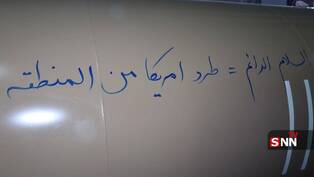 السلام الدائم = طرد امريكا من المنطقه
SNN
TV